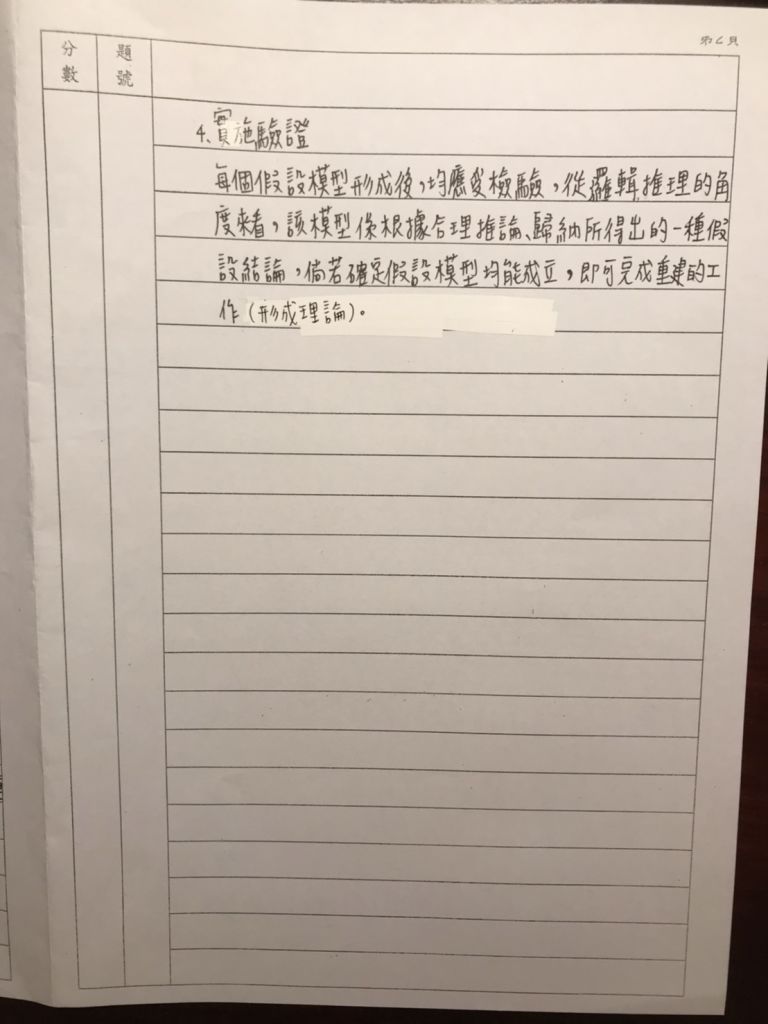 第6頁
分數
題號
4、實施驗證
每個假設模型形成後，均應受檢驗，從邏輯推理的角
度來看，該模型係根據合理推論、歸納所得出的一種假
設結論，倘若確定假設模型均能成立，即可完成重建的工
作（形成理論）。